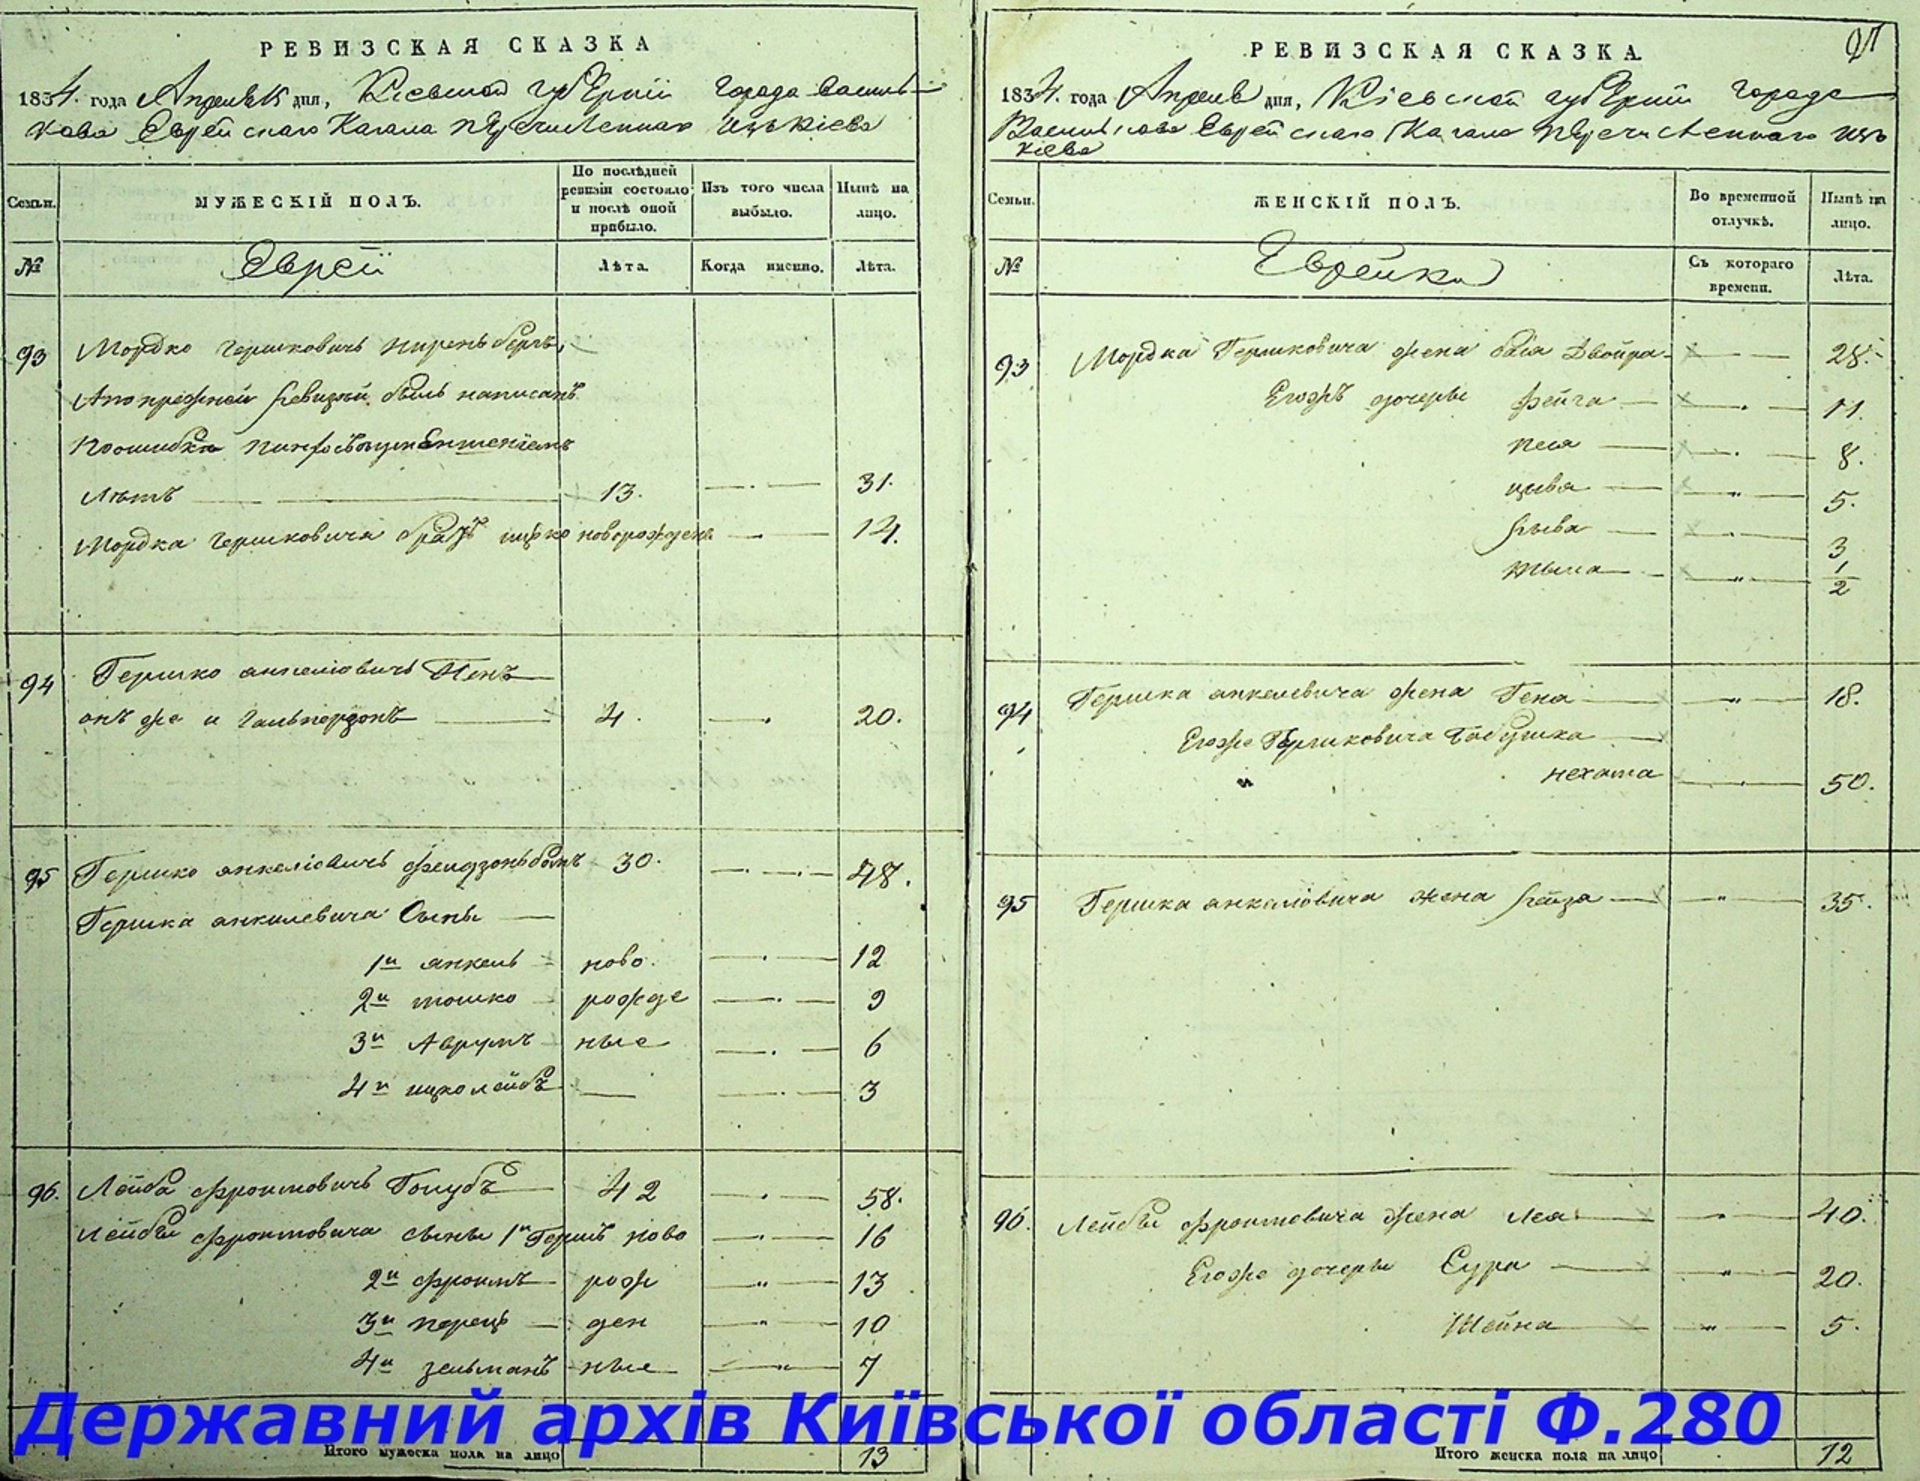 РЕВИЗСКАЯ СКАЗКА
1834. года Апреля 15 дня, Кіевской губерніи города василь-
кова Еврейскаго Кагала перечисленнаго изъ Кіева
Семьи.
МУЖЕСКІЙ ПОЛЪ.
По послѣдней ревизіи состояло и послѣ оной прибыло.
Изъ того числа выбыло.
Нынѣ на лицо.
№
Евреи
Лѣта.
Когда именно.
Лѣта.
93 Мордко Гершковичъ Ниренбергъ,
А по прежней ревизіи былъ написанъ
по ошибке
Лѣтъ 13. 31.
Мордка Гершковича братъ ицко новорожден. 14.
94 Гершко анкеліовичъ
онъ же и Гальперзонъ 4. 20.
95 Гершко анкеліовичъ 30. 48.
Гершка анкилевича Сыны
1й анкель ново. 12
2й мошко рожде 9
3й Аврумъ ные 6
4й ицко лейбъ 3
96. Лейба фроимовичъ Голубъ 42 58.
Лейбы фроимовича сыны 1й Гершъ ново 16
2й фроимъ рож 13
3й перецъ ден 10
4й зельманъ ные 7
Итого мужеска пола на лицо 13
РЕВИЗСКАЯ СКАЗКА
91
1834. года Апреля дня, Кіевской губерніи города
Василькова Еврейскаго Кагала перечисленнаго изъ
Кіева
Семьи.
ЖЕНСКІЙ ПОЛЪ.
Во временной отлучкѣ.
Нынѣ на лицо.
№
Еврейки
Съ котораго времени.
Лѣта.
93 Мордка Гершковича жена бася Двойра 28.
Егожъ дочеры фейга 11.
песя 8.
цыва 5.
рыва 3
1/2
94 Гершка анкелевича жена Гена 18.
Егоже Гершковича бабушка
нехама 50.
95 Гершка анкеліовича жена рейза 35.
96. Лейбы фроимовича жена лея 40.
Егоже дочеры Сура 20.
Шейна 5.
Итого женска пола на лицо 12
Державний архів Київської області Ф.280